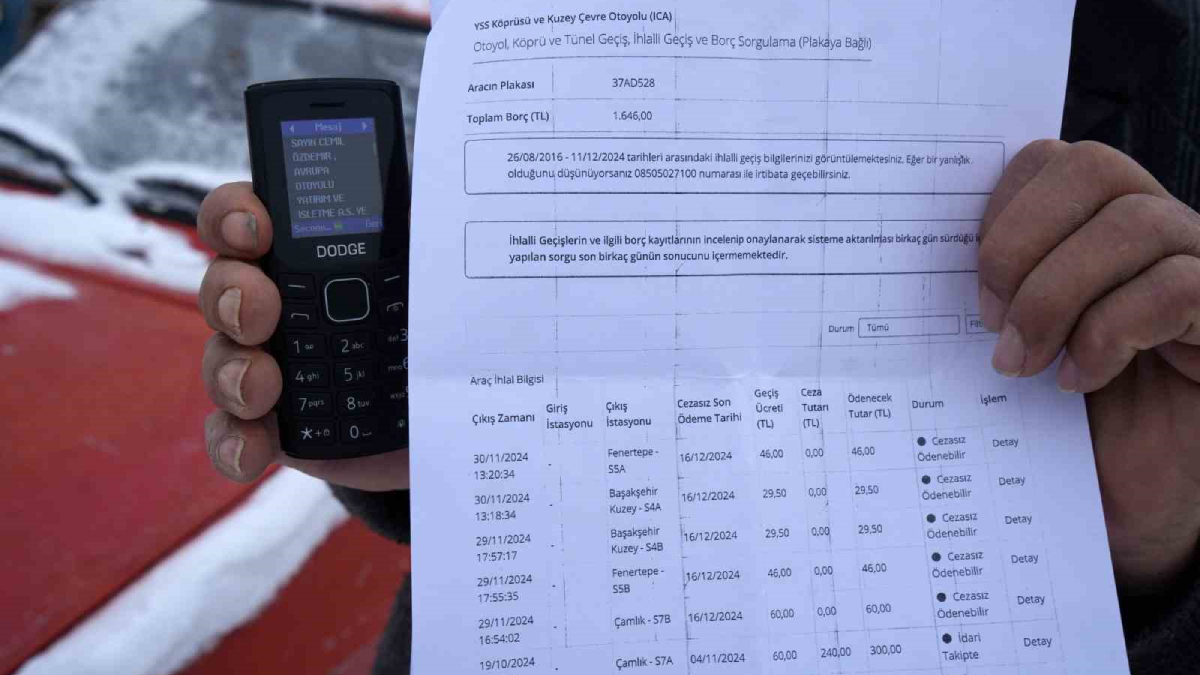 Mesaj
SAYIN CEMİL
ÖZDEMİR,
AVRUPA
OTOYOLU
YATIRIM VE
İSLETME A.S. VE
DODGE
1
2 abc
3
4 ghi
5 jkl
6
7 pqrs
8 tuv
0
YSS Köprüsü ve Kuzey Çevre Otoyolu (ICA)
Otoyol, Köprü ve Tünel Geçiş, İhlalli Geçiş ve Borç Sorgulama (Plakaya Bağlı)
Aracın Plakası 37AD528
Toplam Borç (TL) 1.646,00
26/08/2016 - 11/12/2024 tarihleri arasındaki ihlalli geçiş bilgilerinizi görüntülemektesiniz. Eğer bir yanlışlık
olduğunu düşünüyorsanız 08505027100 numarası ile irtibata geçebilirsiniz.
İhlalli Geçişlerin ve ilgili borç kayıtlarının incelenip onaylanarak sisteme aktarılması birkaç gün sürdüğü
yapılan sorgu son birkaç günün sonucunu içermemektedir.
Durum Tümü
Araç İhlal Bilgisi
Çıkış Zamanı Giriş İstasyonu Çıkış İstasyonu Cezasız Son Ödeme Tarihi Geçiş Ücreti (TL) Ceza Tutarı (TL) Ödenecek Tutar (TL) Durum İşlem
30/11/2024 13:20:34 - Fenertepe - S5A 16/12/2024 46,00 0,00 46,00 Cezasız Ödenebilir Detay
30/11/2024 13:18:34 - Başakşehir Kuzey - S4A 16/12/2024 29,50 0,00 29,50 Cezasız Ödenebilir Detay
29/11/2024 17:57:17 - Başakşehir Kuzey - S4B 16/12/2024 29,50 0,00 29,50 Cezasız Ödenebilir Detay
29/11/2024 17:55:35 - Fenertepe - S5B 16/12/2024 46,00 0,00 46,00 Cezasız Ödenebilir Detay
29/11/2024 16:54:02 - Çamlık - S7B 16/12/2024 60,00 0,00 60,00 Cezasız Ödenebilir Detay
19/10/2024 - Çamlık - S7A 04/11/2024 60,00 240,00 300,00 İdari Takipte Detay